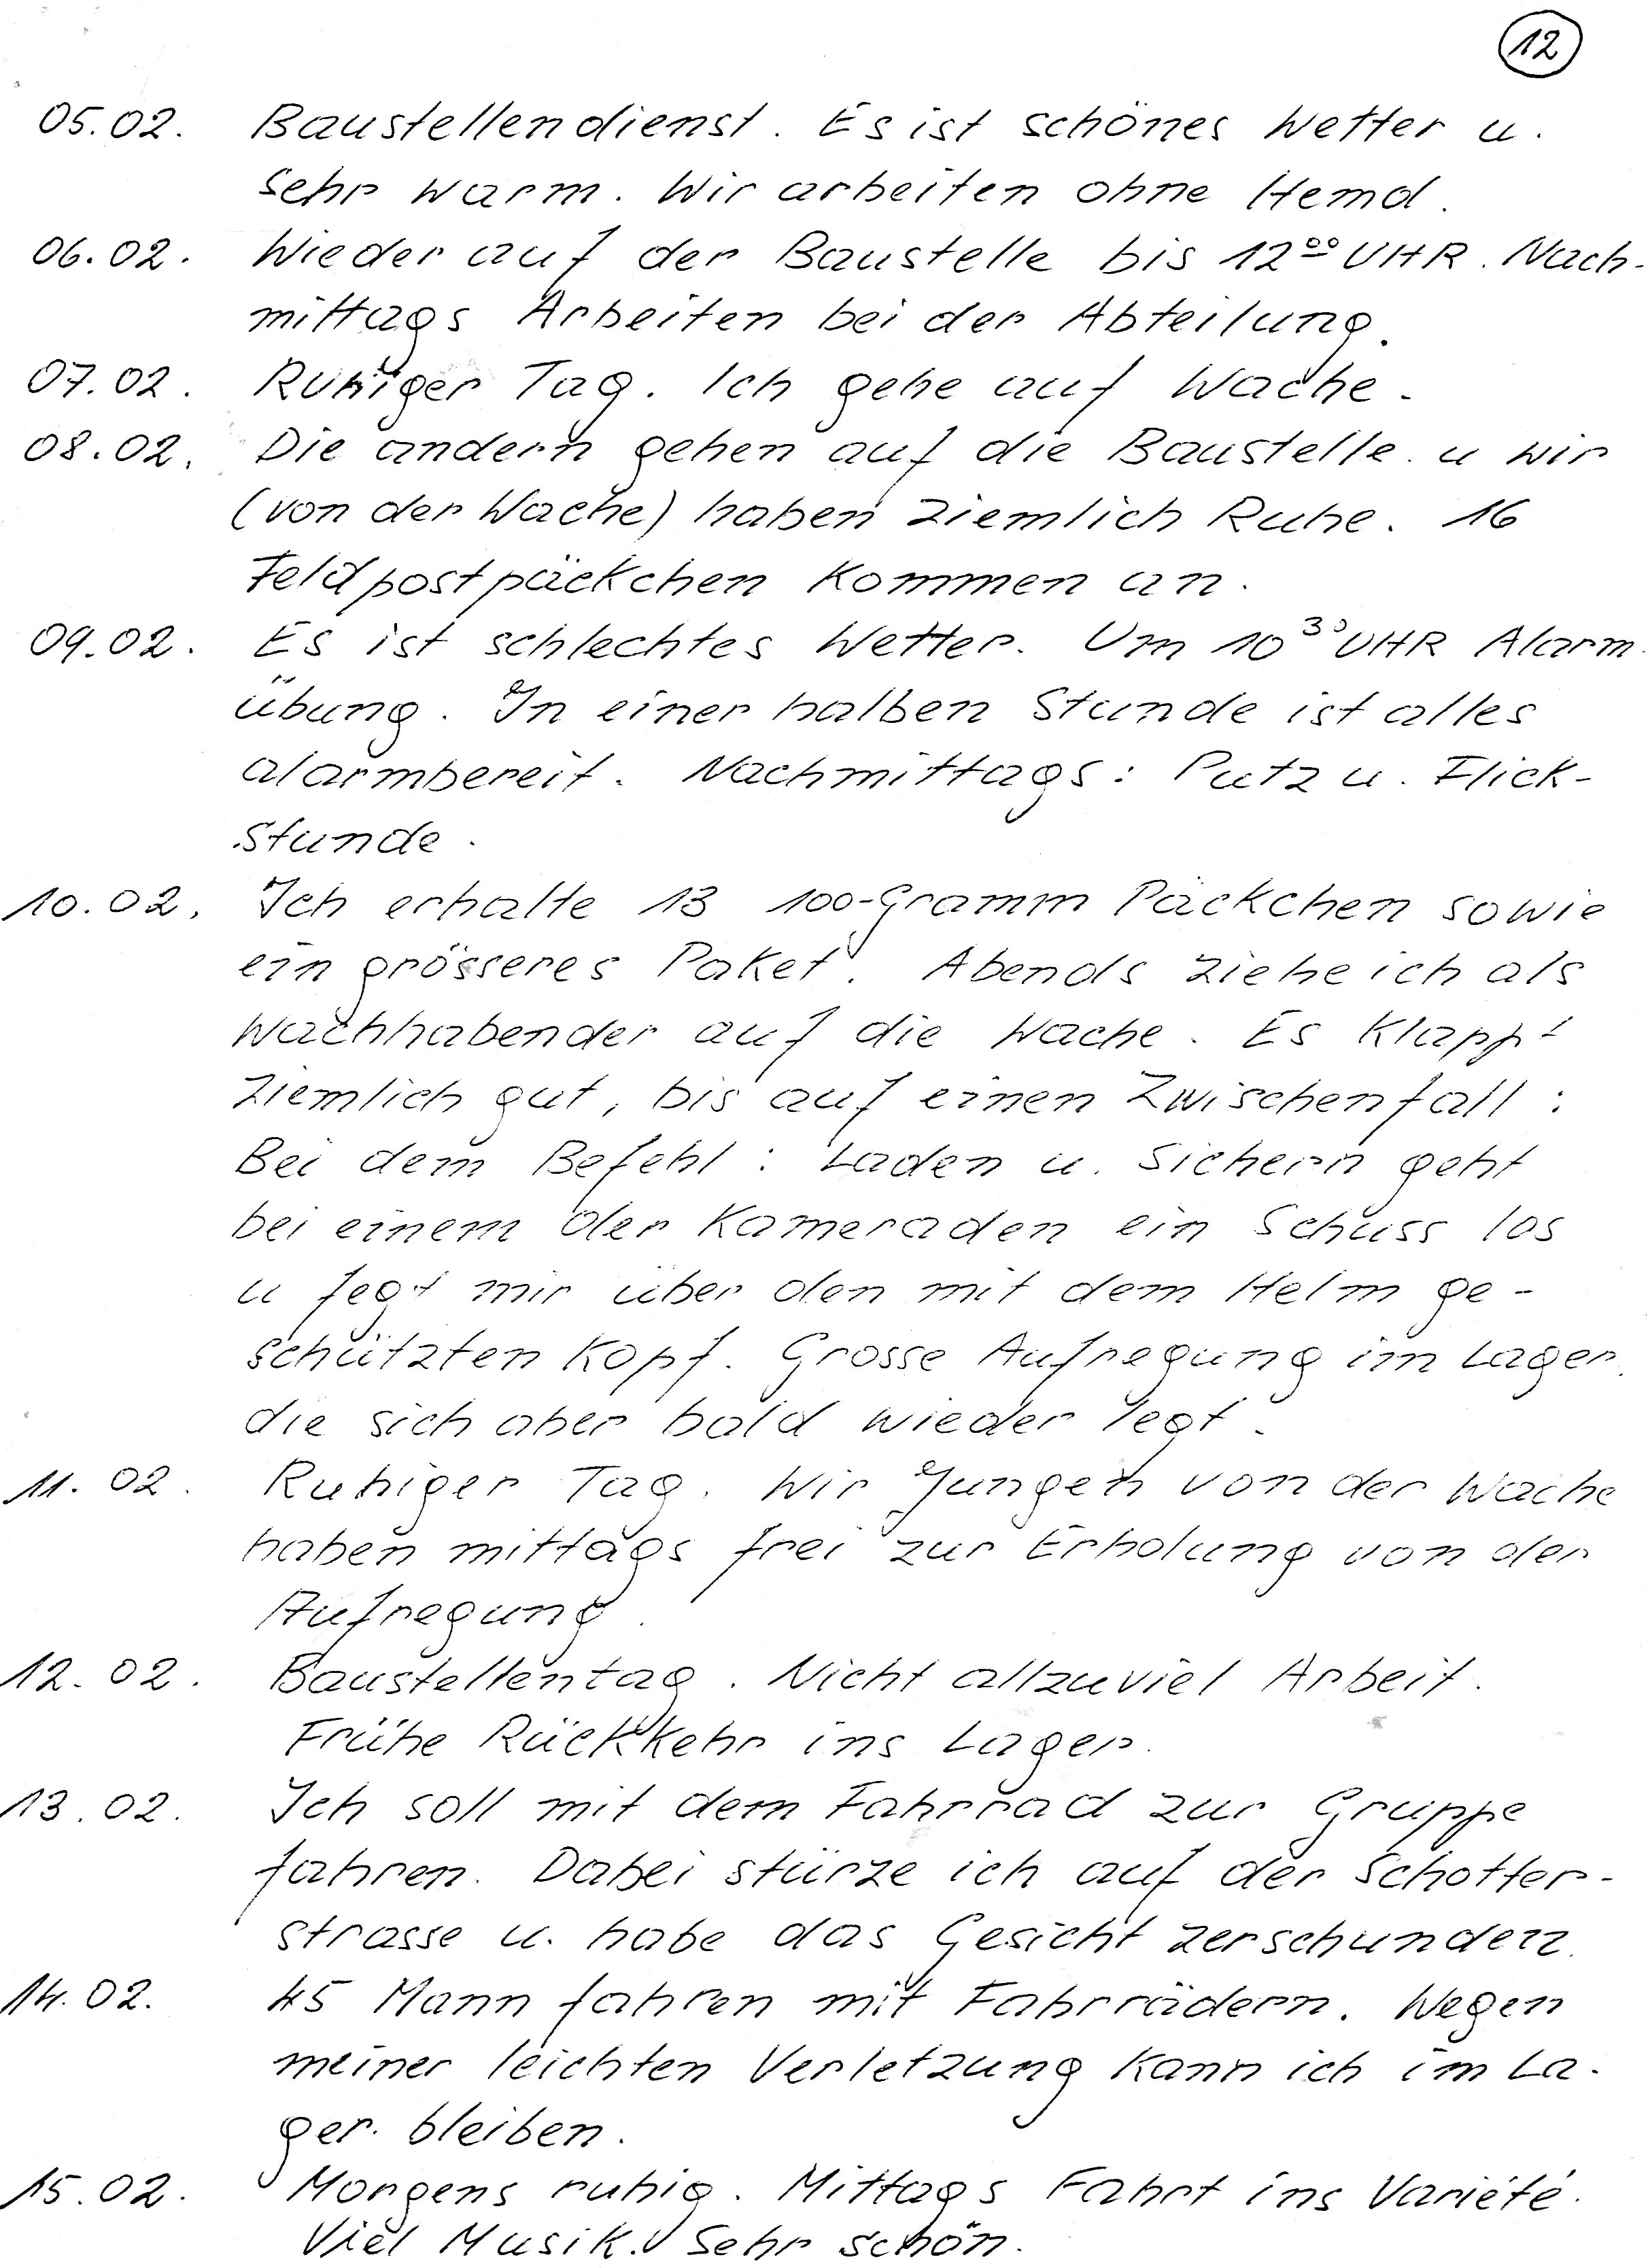 12
05.02. Baustellendienst. Es ist schönes Wetter u.
sehr warm. Wir arbeiten ohne Hemd.
06.02. Wieder auf der Baustelle bis 12⁰⁰ UHR. Nach-
mittags Arbeiten bei der Abteilung.
07.02. Ruhiger Tag. Ich gehe auf Wache.
08.02. Die andern gehen auf die Baustelle. u wir
(von der Wache) haben ziemlich Ruhe. 16
Feldpostpäckchen kommen an.
09.02. Es ist schlechtes Wetter. Um 10³⁰ UHR Alarm-
übung. In einer halben Stunde ist alles
alarmbereit. Nachmittags: Putz u. Flick-
stunde.
10.02. Ich erhalte 13 100-Gramm Päckchen sowie
ein grösseres Paket. Abends ziehe ich als
Wachhabender auf die Wache. Es klappt
ziemlich gut, bis auf einen Zwischenfall:
Bei dem Befehl: Laden u. Sichern geht
bei einem der Kameraden ein Schuss los
u fegt mir über den mit dem Helm ge-
schützten Kopf. Grosse Aufregung im Lager.
die sich aber bald wieder legt.
11.02. Ruhiger Tag. Wir Jungen von der Wache
haben mittags frei zur Erholung von der
Aufregung.
12.02. Baustellentag. Nicht allzuviel Arbeit.
Frühe Rückkehr ins Lager.
13.02. Ich soll mit dem Fahrrad zur Gruppe
fahren. Dabei stürze ich auf der Schotter-
strasse u. habe das Gesicht zerschunden.
14.02. 45 Mann fahren mit Fahrrädern. Wegen
meiner leichten Verletzung kann ich im La-
ger. bleiben.
15.02. Morgens ruhig. Mittags Fahrt ins Variété.
Viel Musik. Sehr schön.